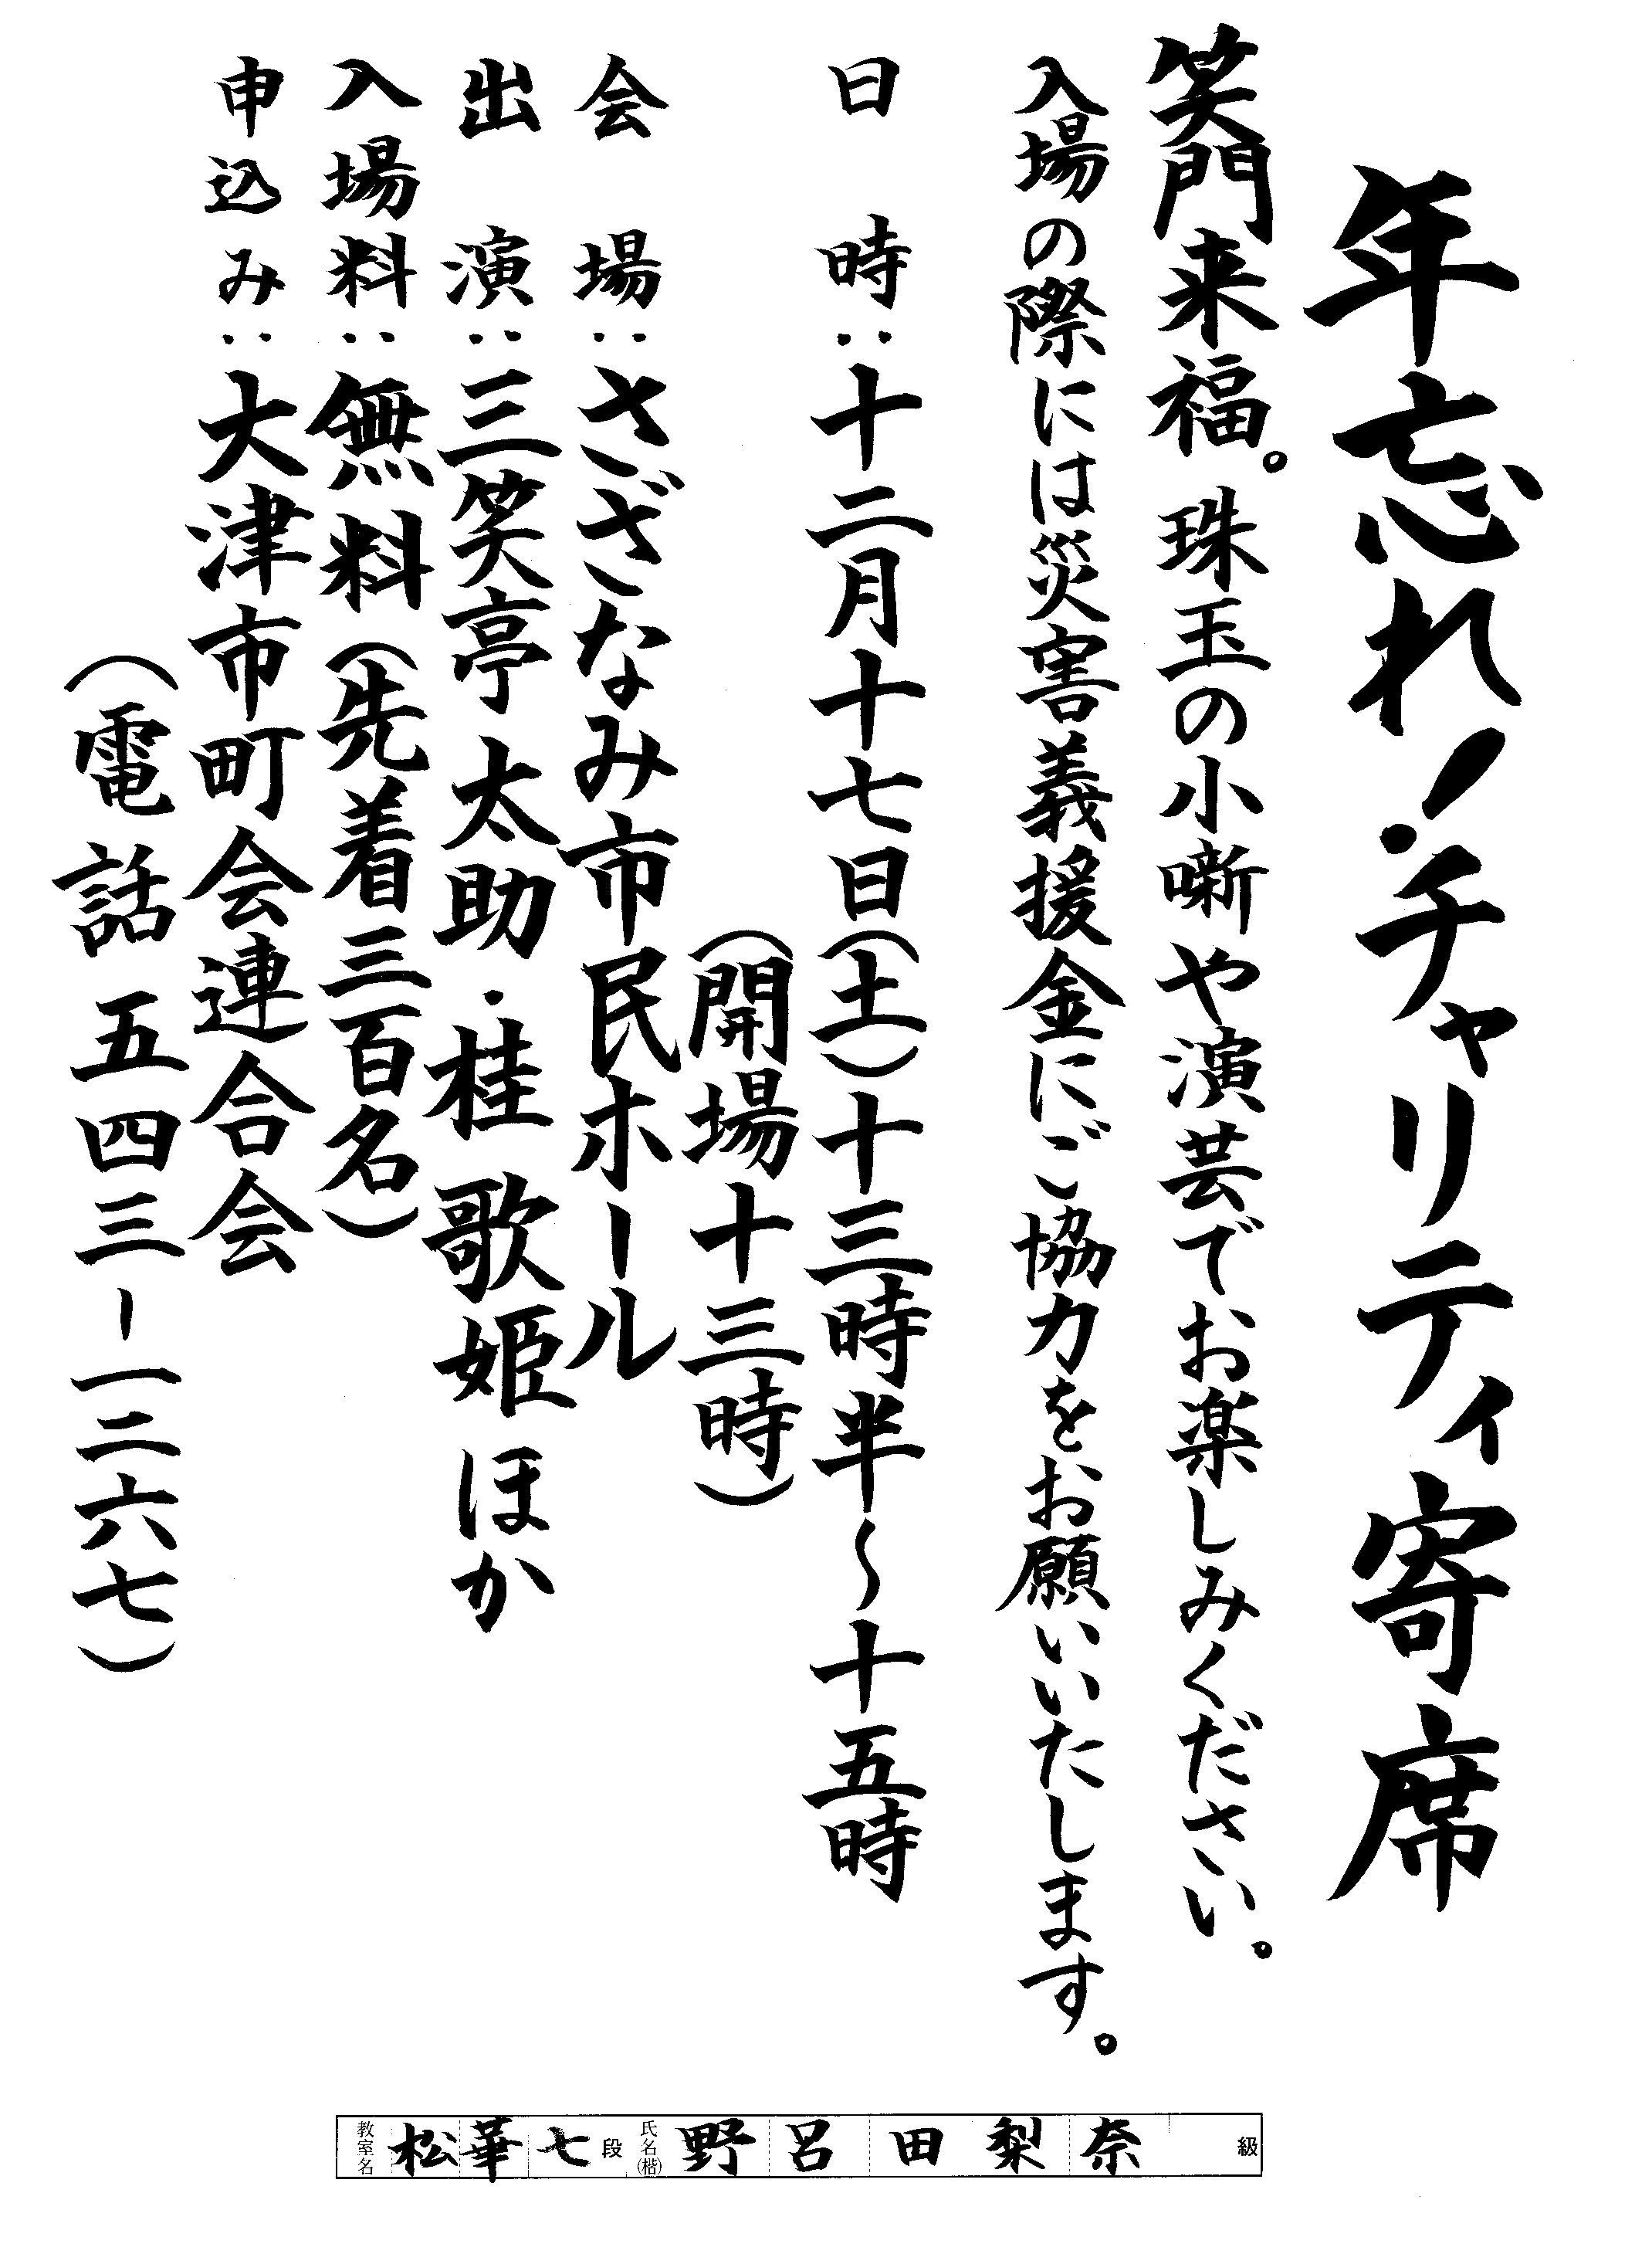 年忘れ！チャリティ寄席
笑門来福。珠玉の小噺や演芸でお楽しみください。
入場の際には災害義援金にご協力をお願いいたします。
日時：十二月十七日（土）十三時半～十五時
（開場十三時）
会場：さざなみ市民ホール
出演：三笑亭太助・桂歌姫ほか
入場料：無料（先着三百名）
申込み：大津市町会連合会
（電話五四三－一二六七）
教室名 松華 七段 氏名(楷) 野呂田梨奈 級